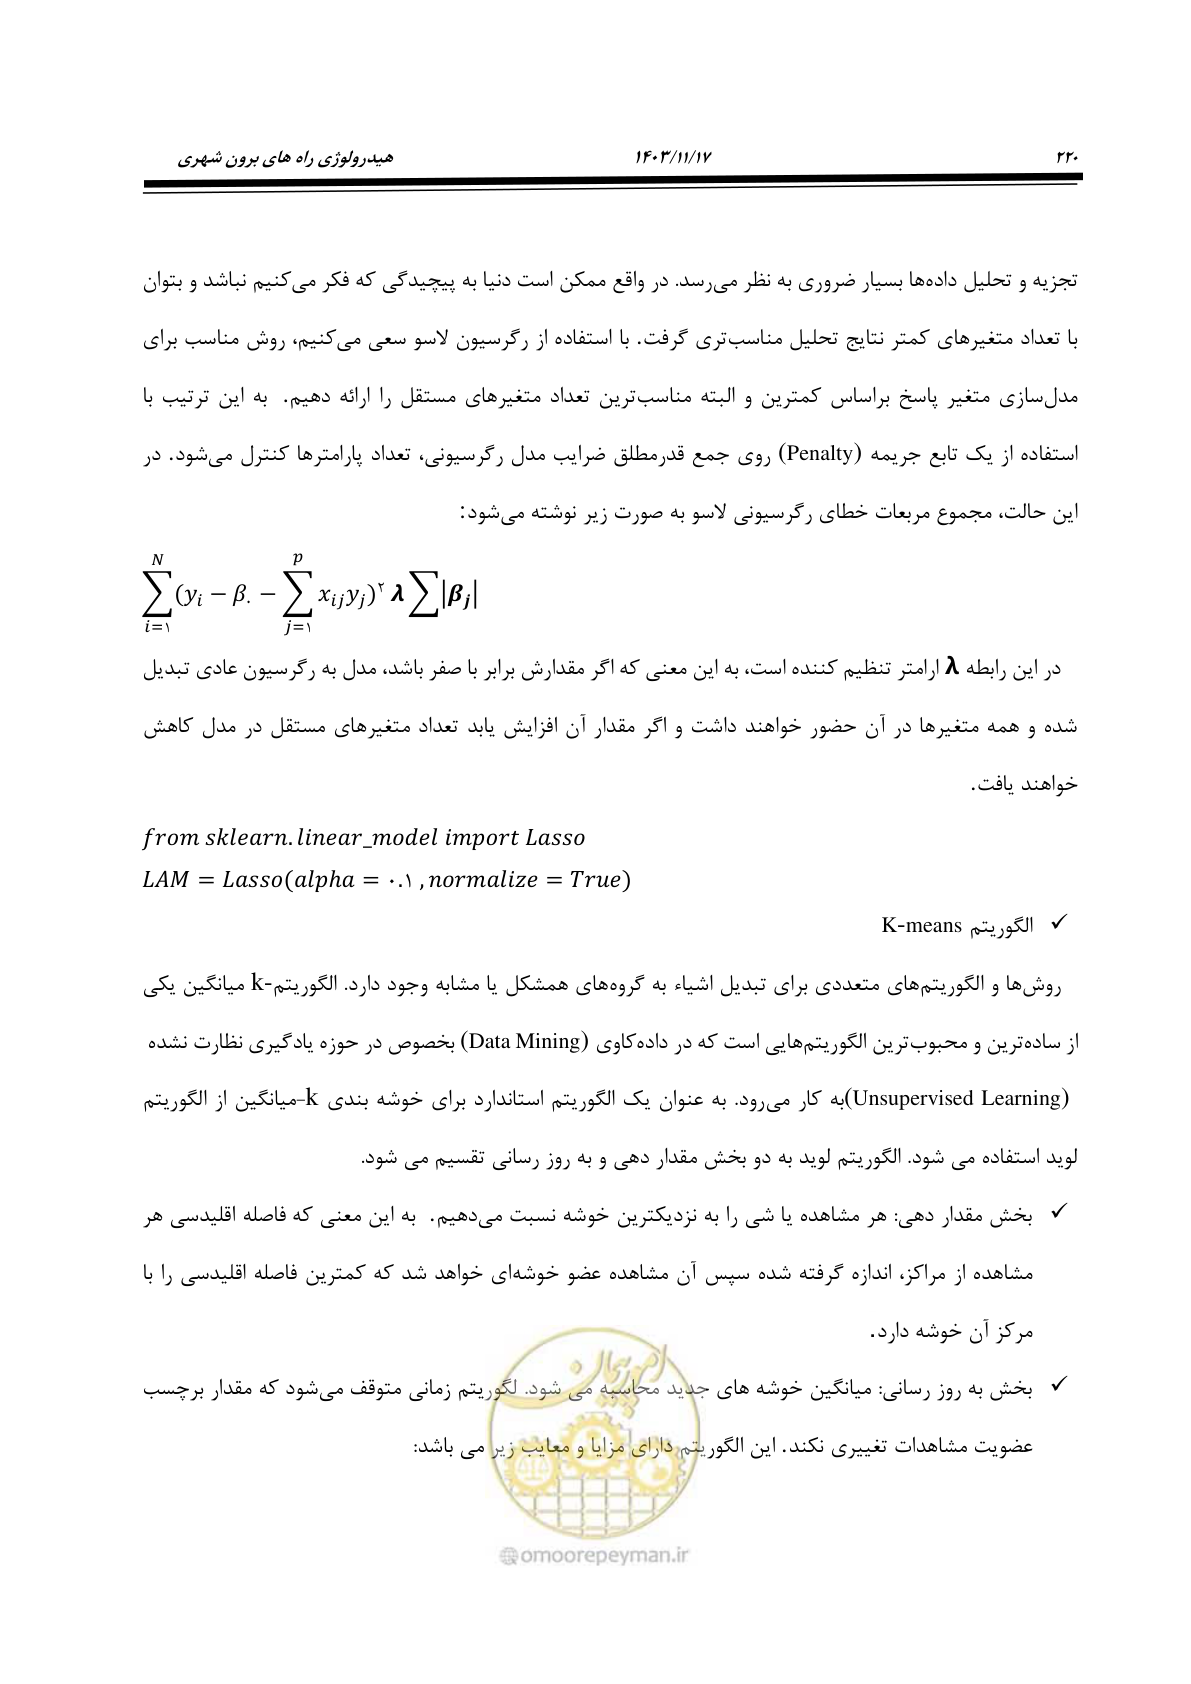 ۲۲۰ ۱۴۰۳/۱۱/۱۷ هیدرولوژی راه های برون شهری
تجزیه و تحلیل داده‌ها بسیار ضروری به نظر می‌رسد. در واقع ممکن است دنیا به پیچیدگی که فکر می‌کنیم نباشد و بتوان
با تعداد متغیرهای کمتر نتایج تحلیل مناسب‌تری گرفت. با استفاده از رگرسیون لاسو سعی می‌کنیم، روش مناسب برای
مدل‌سازی متغیر پاسخ براساس کمترین و البته مناسب‌ترین تعداد متغیرهای مستقل را ارائه دهیم. به این ترتیب با
استفاده از یک تابع جریمه (Penalty) روی جمع قدرمطلق ضرایب مدل رگرسیونی، تعداد پارامترها کنترل می‌شود. در
این حالت، مجموع مربعات خطای رگرسیونی لاسو به صورت زیر نوشته می‌شود:
∑_{i=۱}^{N} (y_i − β_۰ − ∑_{j=۱}^{p} x_{ij} y_j)^۲ λ ∑|β_j|
در این رابطه λ ارامتر تنظیم کننده است، به این معنی که اگر مقدارش برابر با صفر باشد، مدل به رگرسیون عادی تبدیل
شده و همه متغیرها در آن حضور خواهند داشت و اگر مقدار آن افزایش یابد تعداد متغیرهای مستقل در مدل کاهش
خواهند یافت.
from sklearn.linear_model import Lasso
LAM = Lasso(alpha = ۰.۱ , normalize = True)
✓ الگوریتم K-means
روش‌ها و الگوریتم‌های متعددی برای تبدیل اشیاء به گروه‌های همشکل یا مشابه وجود دارد. الگوریتم-k میانگین یکی
از ساده‌ترین و محبوب‌ترین الگوریتم‌هایی است که در داده‌کاوی (Data Mining) بخصوص در حوزه یادگیری نظارت نشده
(Unsupervised Learning)به کار می‌رود. به عنوان یک الگوریتم استاندارد برای خوشه بندی k-میانگین از الگوریتم
لوید استفاده می شود. الگوریتم لوید به دو بخش مقدار دهی و به روز رسانی تقسیم می شود.
✓ بخش مقدار دهی: هر مشاهده یا شی را به نزدیکترین خوشه نسبت می‌دهیم. به این معنی که فاصله اقلیدسی هر
مشاهده از مراکز، اندازه گرفته شده سپس آن مشاهده عضو خوشه‌ای خواهد شد که کمترین فاصله اقلیدسی را با
مرکز آن خوشه دارد.
✓ بخش به روز رسانی: میانگین خوشه های جدید محاسبه می شود. لگوریتم زمانی متوقف می‌شود که مقدار برچسب
عضویت مشاهدات تغییری نکند. این الگوریتم دارای مزایا و معایب زیر می باشد:
امور پیمان
omoorepeyman.ir